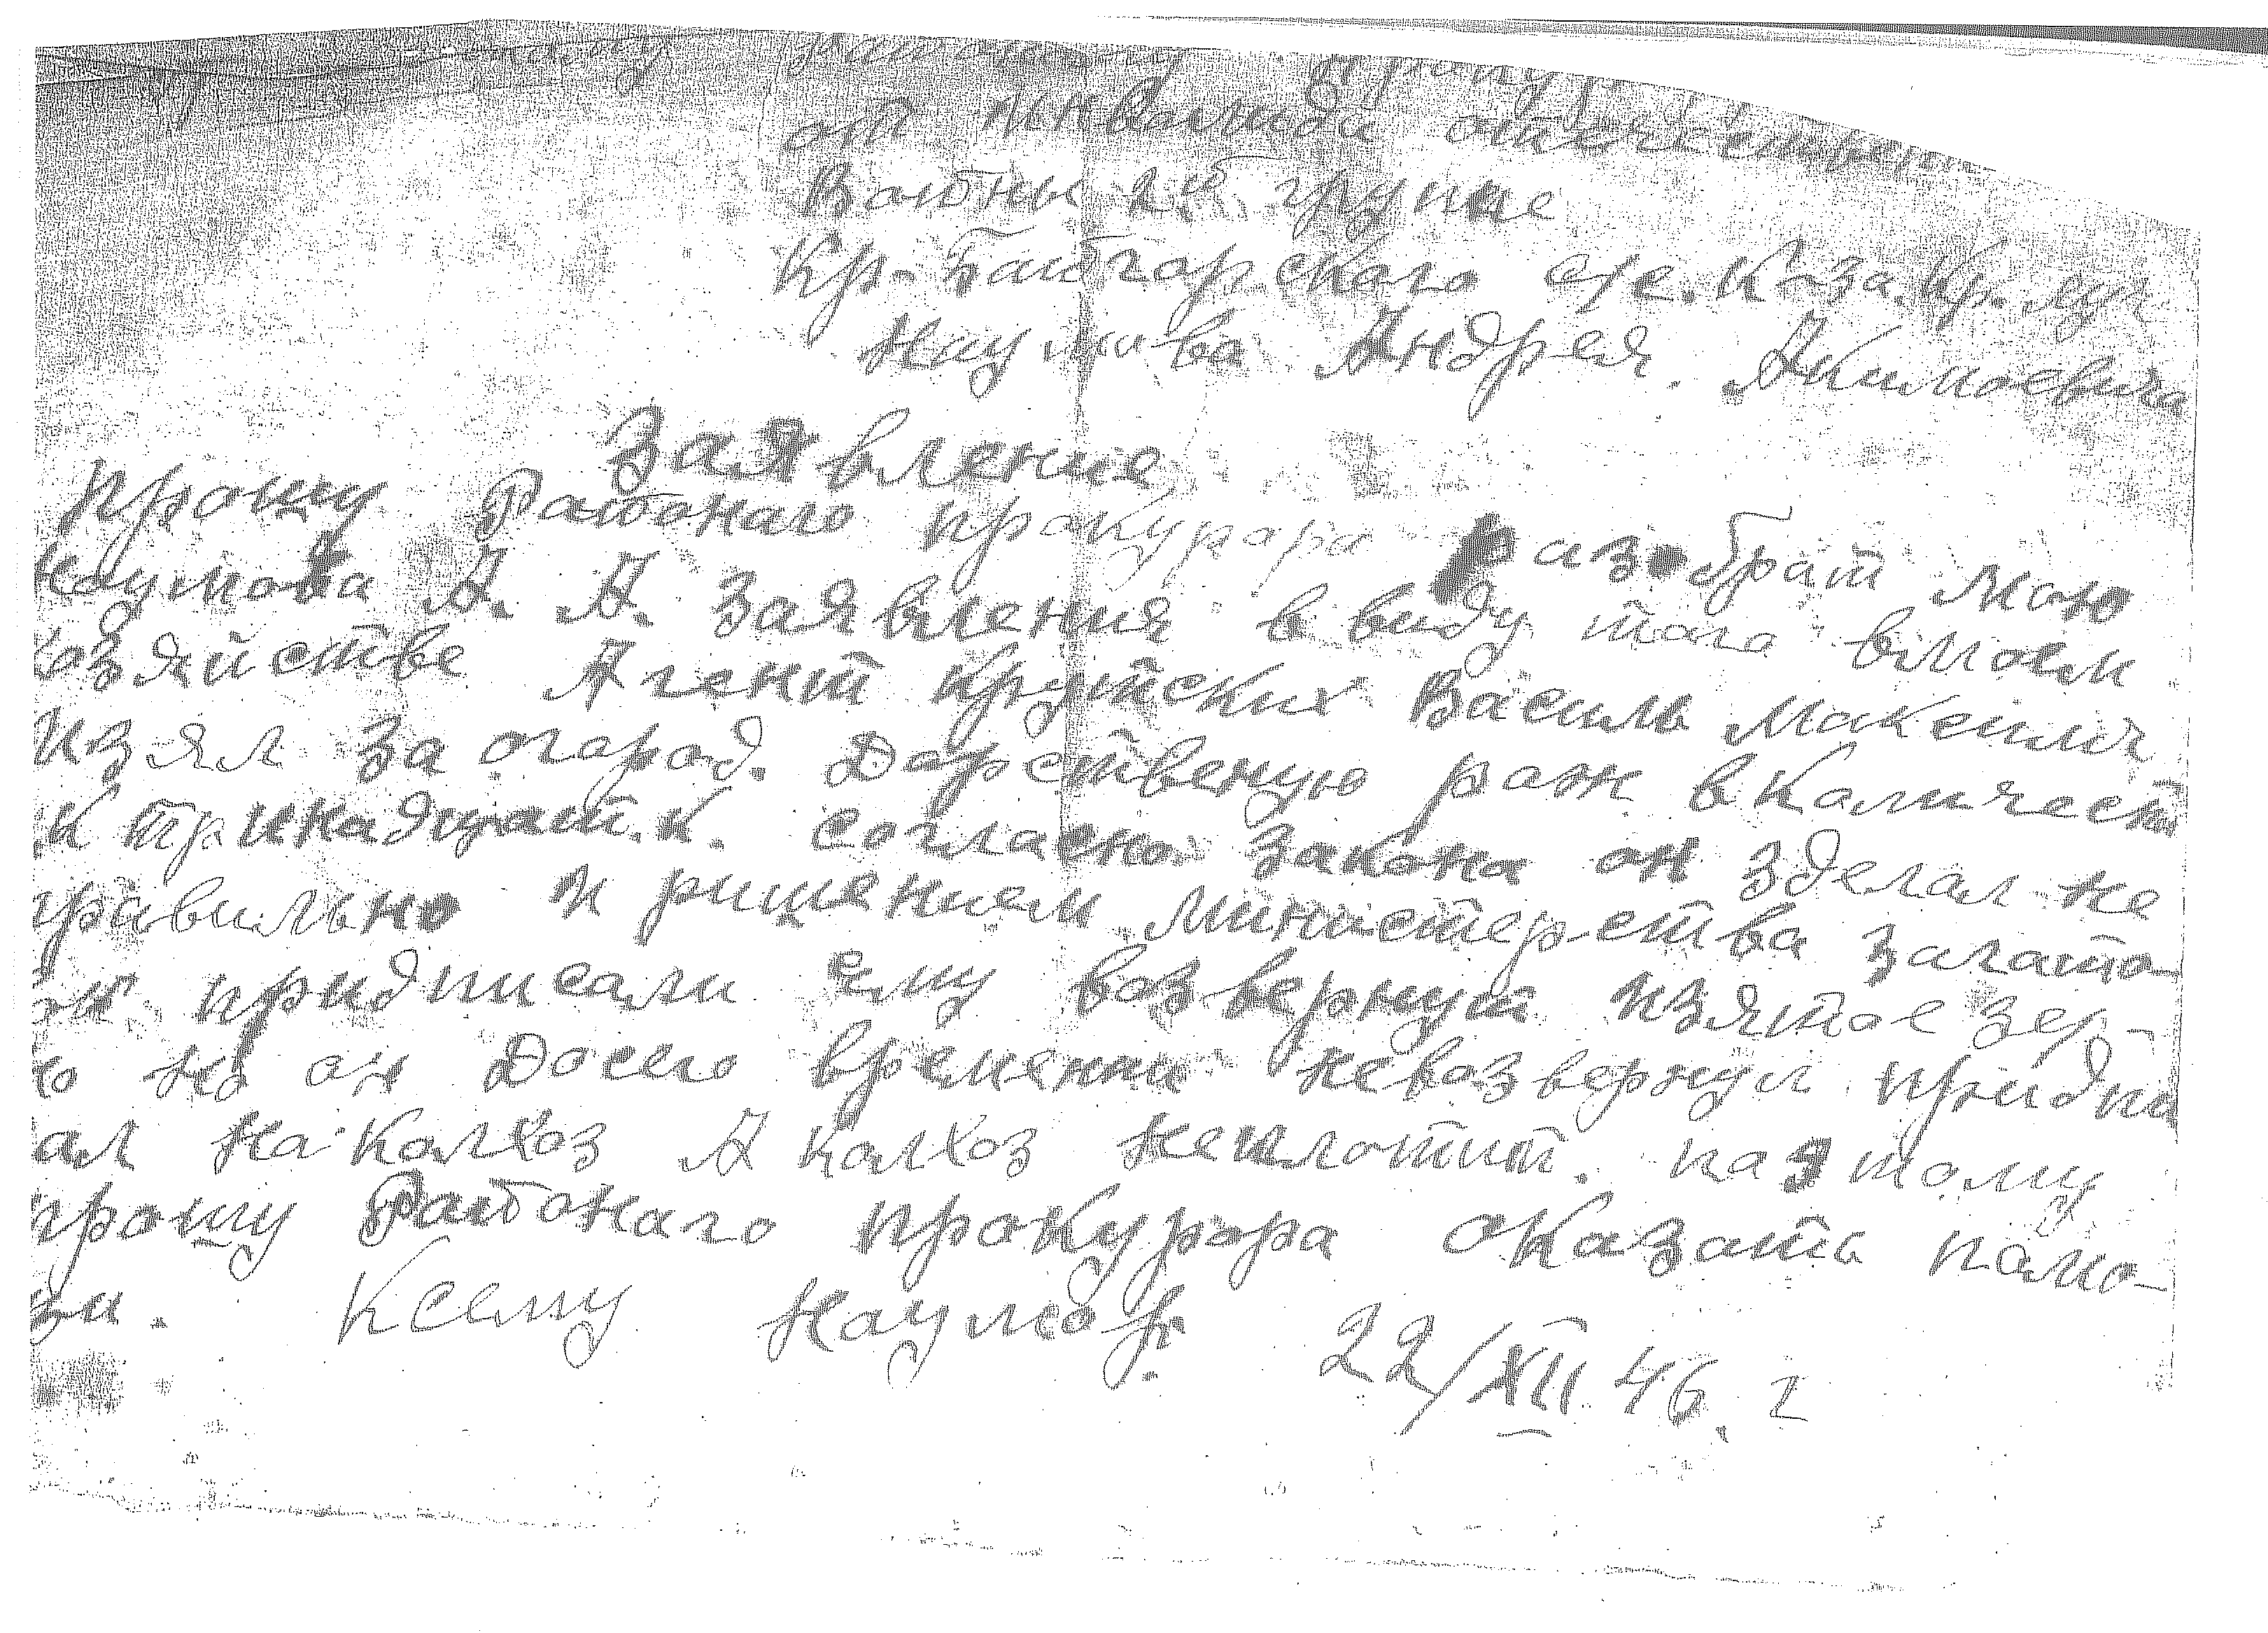 от инвалида отечествен
Войны 2й групе
Кр-Байгорского с/с. К-за. Кр. луч
Наумова Андрея. Акимоевича
Заявление
прошу Районаго пракурара разобрат Маю
Наумова А. А. Заявления в виду таго вмоем
хозяйстве Агент Крутских Василь Максимич
изял за огарод. Дарственую рож вКаличест
к тринадцат. к. Согласно закона он зделал не
правильно и ришением Министерства загато-
придписали ему возвернут изятое зер-
о но он Досего времени невозвернул придпи
ал на Калхоз А калхоз неплотит. паэтому
прошу Районаго пракурора оказать памо-
зи. Ксему Наумов. 22/XII 46. г